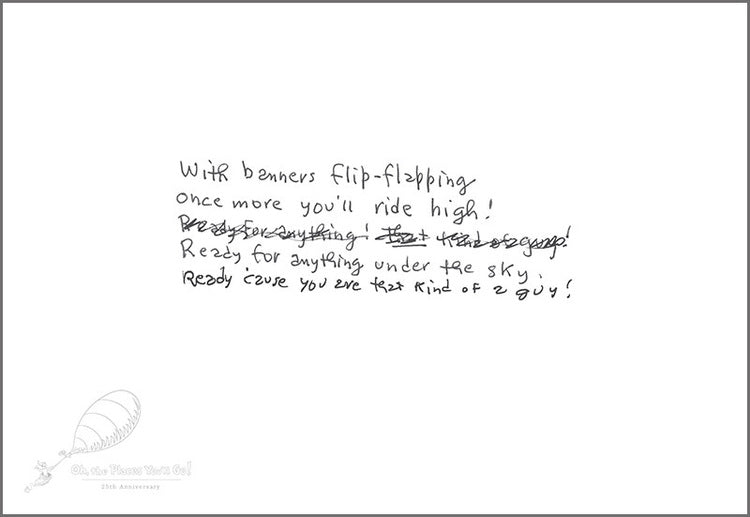 With banners flip-flapping
once more you'll ride high!
Ready for anything! That kind of a guy!
Ready for anything under the sky.
Ready 'cause you are that kind of a guy!
Oh, the Places You'll Go!
25th Anniversary